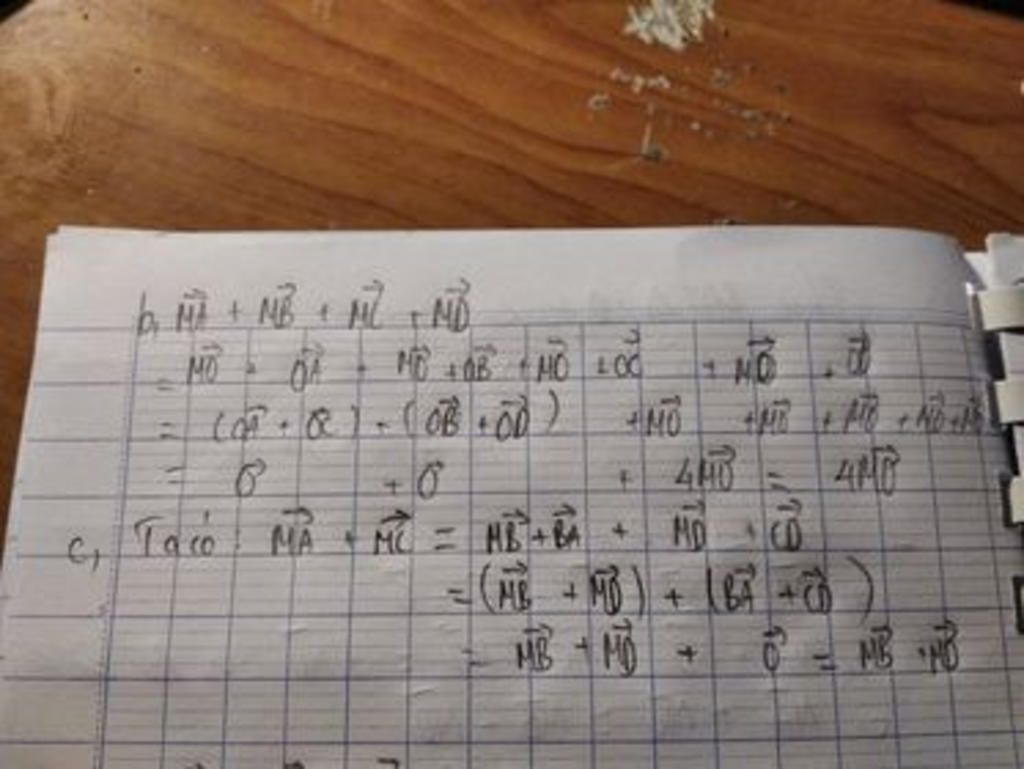 b, MA⃗ + MB⃗ + MC⃗ + MD⃗
= MO⃗ + OA⃗ + MO⃗ + OB⃗ + MO⃗ + OC⃗ + MO⃗ + OD⃗
= (OA⃗ + OC⃗) + (OB⃗ + OD⃗) + MO⃗ + MO⃗ + MO⃗ + MO⃗ +
= O⃗ + O⃗ + 4MO⃗ = 4MO⃗
c, Ta có: MA⃗ + MC⃗ = MB⃗ + BA⃗ + MD⃗ + CD⃗
= (MB⃗ + MD⃗) + (BA⃗ + CD⃗)
= MB⃗ + MD⃗ + O⃗ = MB⃗ + MD⃗